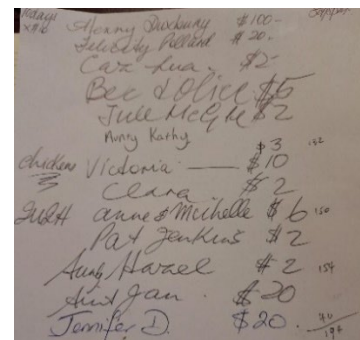 Henny Duxbury $100-
Felicity Pollard $20-
Cara Lua $2-
Bec & Olice $5
Julie McGhe $2
Aunry Kathy
$3 132
chickens Victoria — $10
Clara $2
Judth anne & Michelle $6 150
Pat Jenkins $2
Aunty Hazel $2 154
Aint Jan. $20
Jennifer D. $20. 40
194